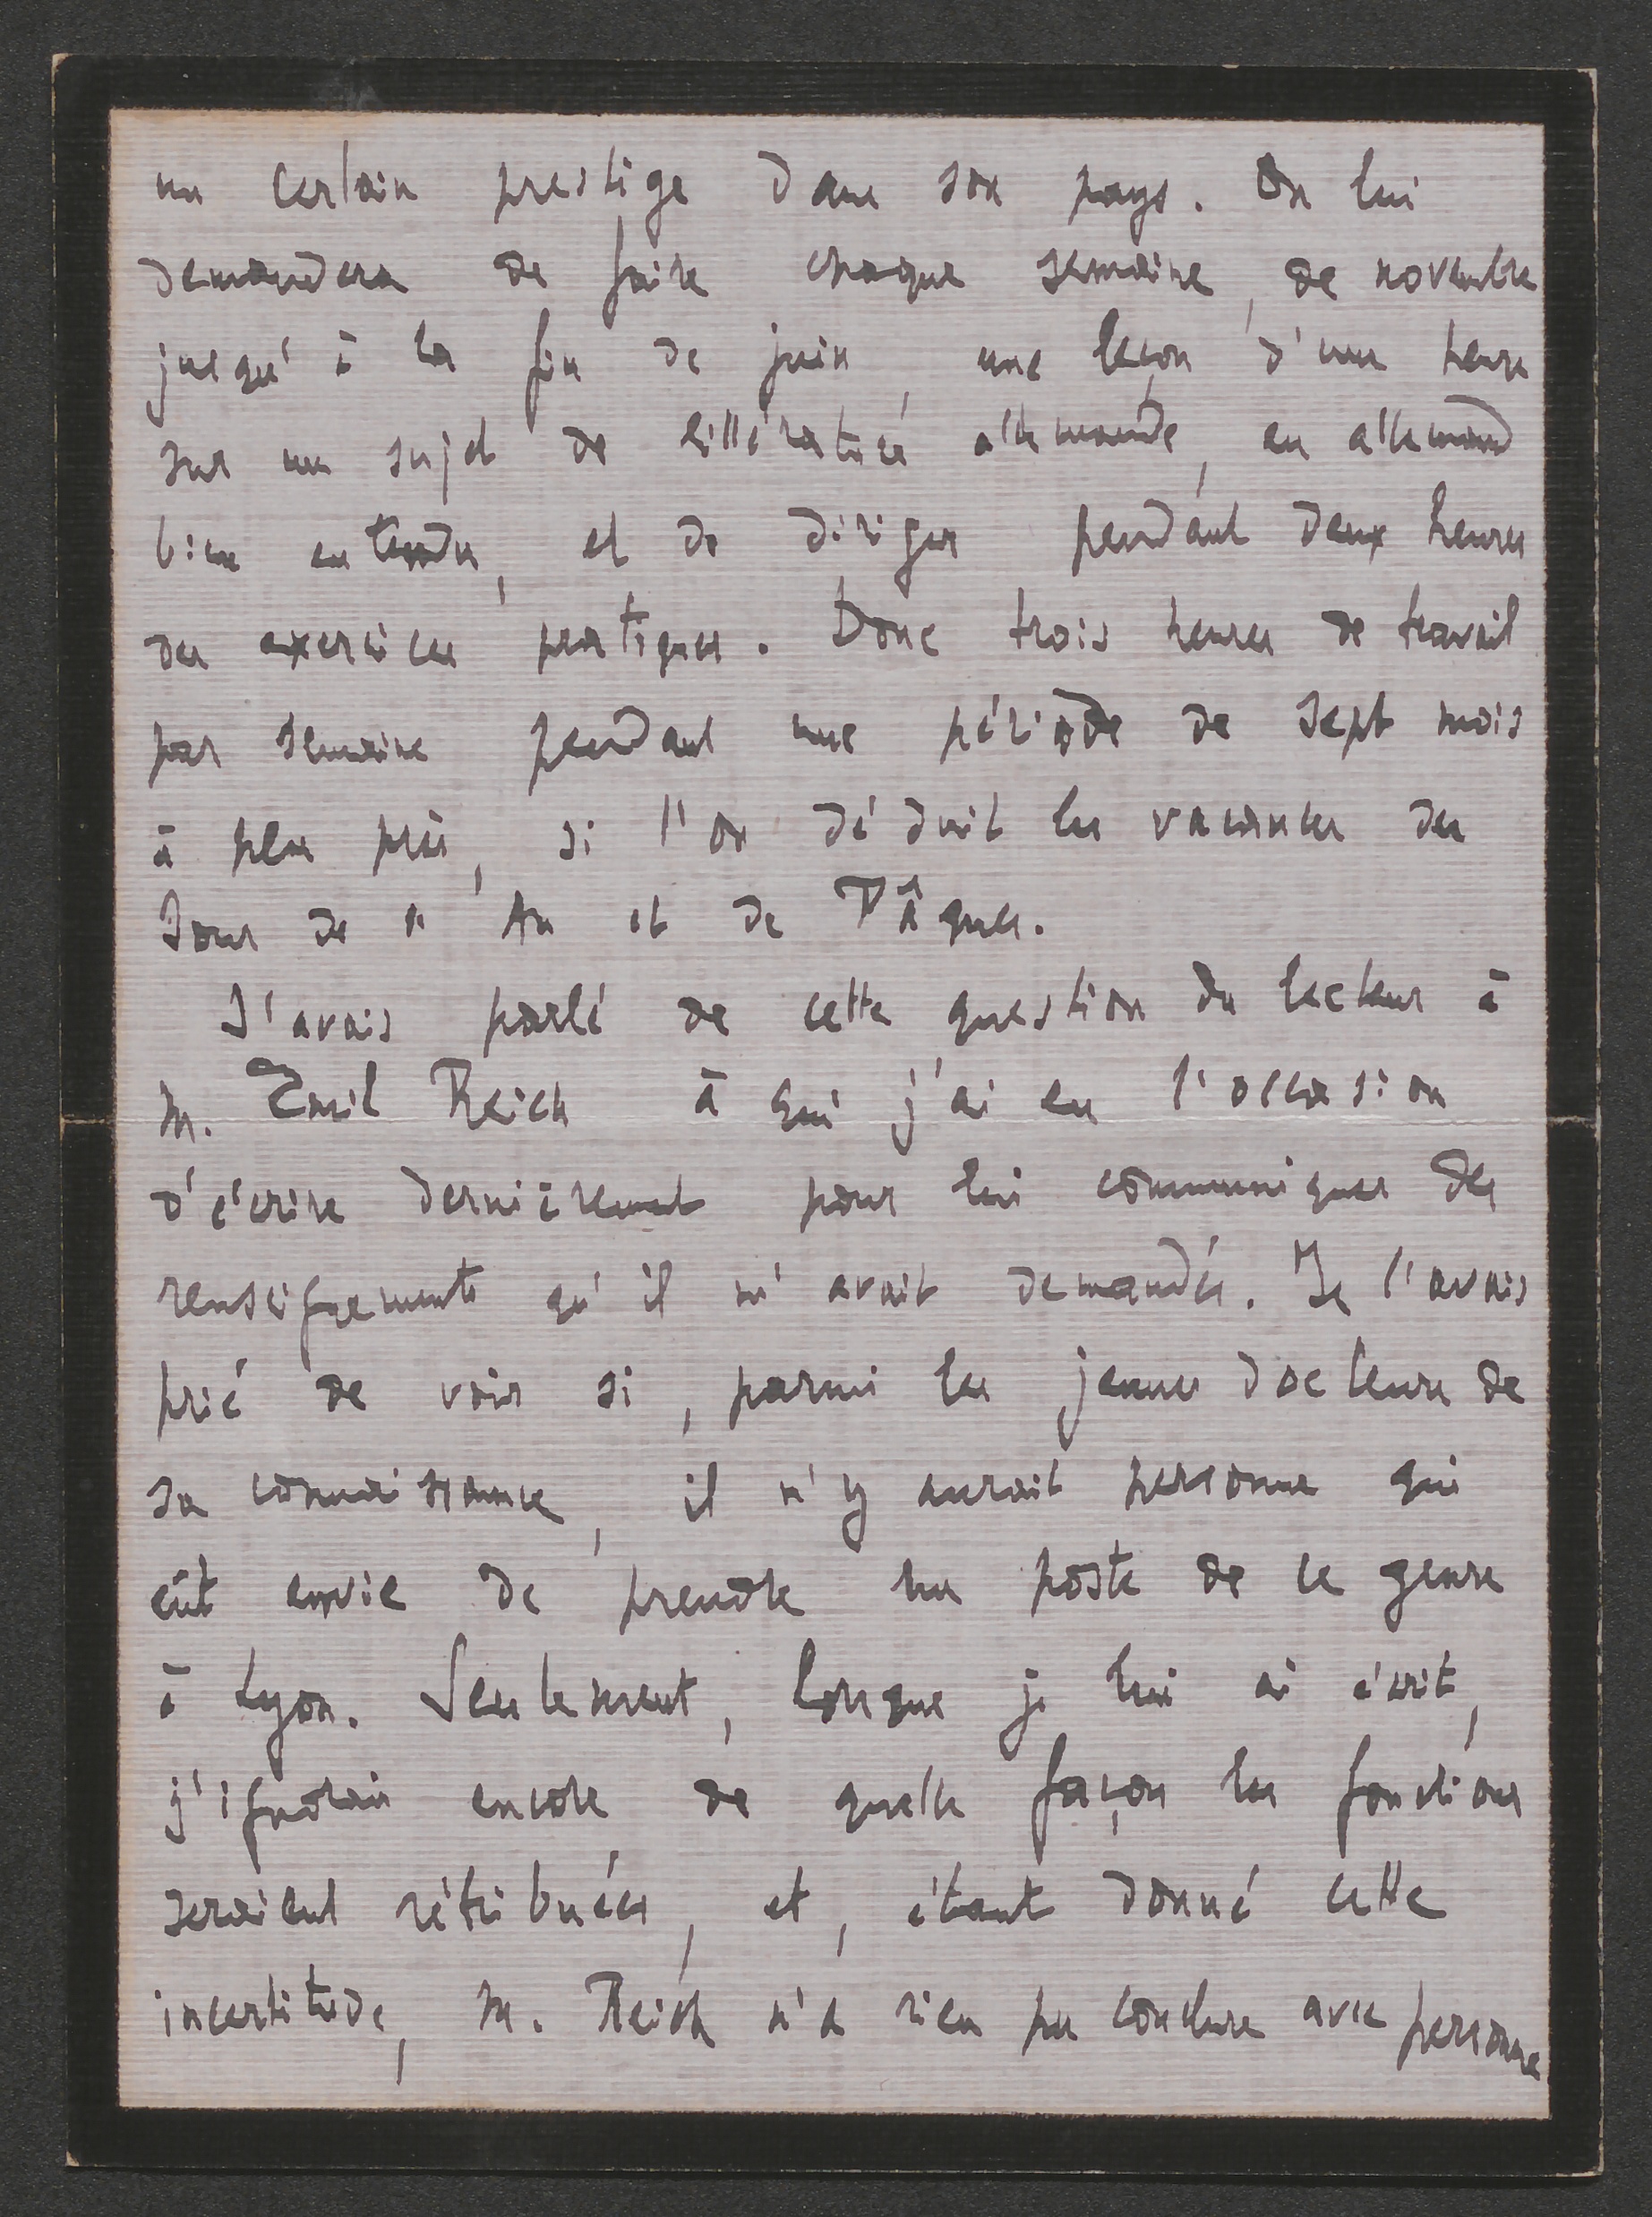 un certain prestige dans son pays. On lui
demandera de faire chaque semaine, de novembre
jusqu'à la fin de juin, une leçon d'une heure
sur un sujet de littérature allemande, en allemand
bien entendu, et de diriger pendant deux heures
des exercices pratiques. Donc trois heures de travail
par semaine pendant une période de sept mois
à peu près, si l'on déduit les vacances du
Jour de l'An et de Pâques.
J'avais parlé de cette question du lecteur à
M. Emil Reich à qui j'ai eu l'occasion
d'écrire dernièrement pour lui communiquer des
renseignements qu'il m'avait demandés. Je l'avais
prié de voir si, parmi les jeunes docteurs de
sa connaissance, il n'y aurait personne qui
eût envie de prendre un poste de ce genre
à Lyon. Seulement, lorsque je lui ai écrit,
j'ignorais encore de quelle façon les fonctions
seraient rétribuées, et, étant donné cette
incertitude, M. Reich n'a rien pu conclure avec personne